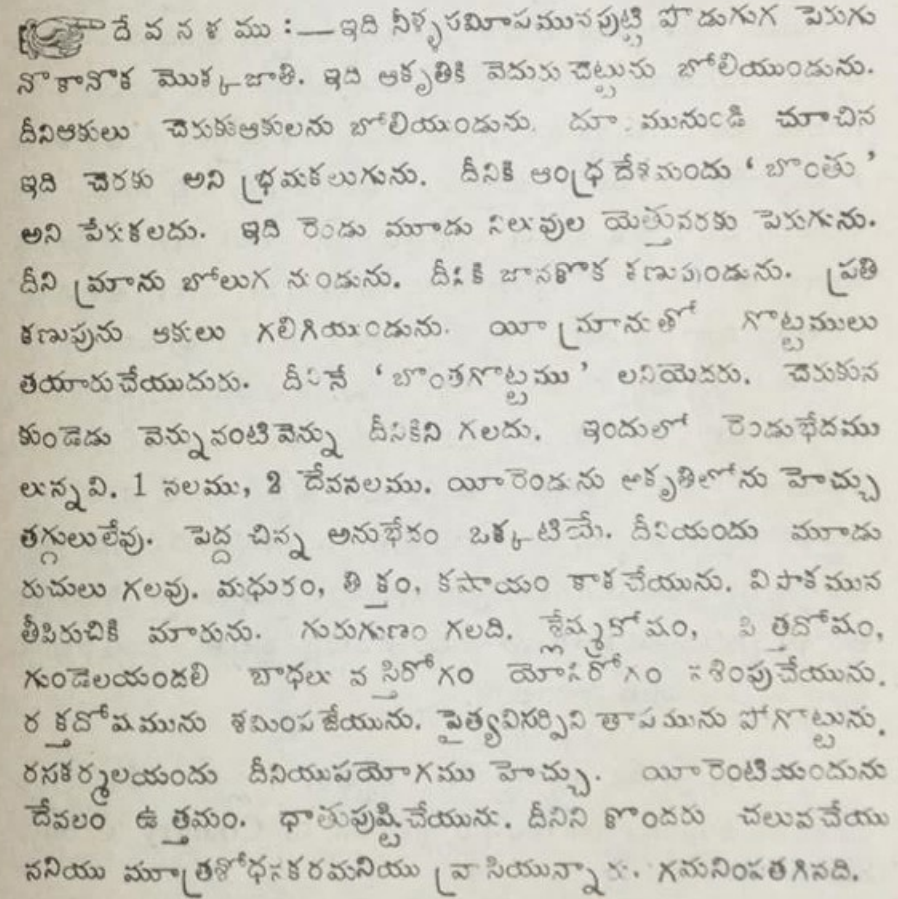 దే వ న ళ ము :—ఇది నీళ్ళసమీపమునపుట్టి పొడుగుగ పెరుగు
నొకానొక మొక్కజాతి. ఇది ఆకృతికి వెదురు చెట్టును బోలియుండును.
దీనిఆకులు చెరుకుఆకులను బోలియుండును. దూ మునుండి చూచిన
ఇది చెరకు అని భ్రమకలుగును. దీనికి ఆంధ్ర దేశమందు ‘బొంతు’
అని పేరుకలదు. ఇది రెండు మూడు నిలువుల యెత్తువరకు పెరుగును.
దీని మ్రాను బోలుగ నుండును. దీనికి జానకొక కణుపుండును. ప్రతి
కణుపును ఆకులు గలిగియుండును. యీ మ్రానుతో గొట్టములు
తయారుచేయుదురు. దీనినే ‘బొంతగొట్టము’ లనియెదరు. చెరుకున
కుండెడు వెన్నువంటివెన్ను దీనికిని గలదు. ఇందులో రెండుభేదము
లున్నవి. 1 నలము, 2 దేవనలము. యీరెండును ఆకృతిలోను హెచ్చు
తగ్గులులేవు. పెద్ద చిన్న అనుభేదం ఒక్కటియే. దీనియందు మూడు
రుచులు గలవు. మధురం, తిక్తం, కషాయం కాకచేయును. విపాకమున
తీపిరుచికి మారును. గురుగుణం గలది. శ్లేష్మకోషం, పిత్తదోషం,
గుండెలయందలి బాధలు వస్తిరోగం యోనిరోగం నశింపుచేయును.
రక్తదోషమును శమింపజేయును. పైత్యవిసర్పిని తాపమును పోగొట్టును.
రసకర్మలయందు దీనియుపయోగము హెచ్చు. యీరెంటియందును
దేవలం ఉత్తమం. ధాతుపుష్టిచేయును. దీనిని కొందరు చలువచేయు
ననియు మూత్రశోధనకరమనియు వ్రాసియున్నారు. గమనింపతగినది.